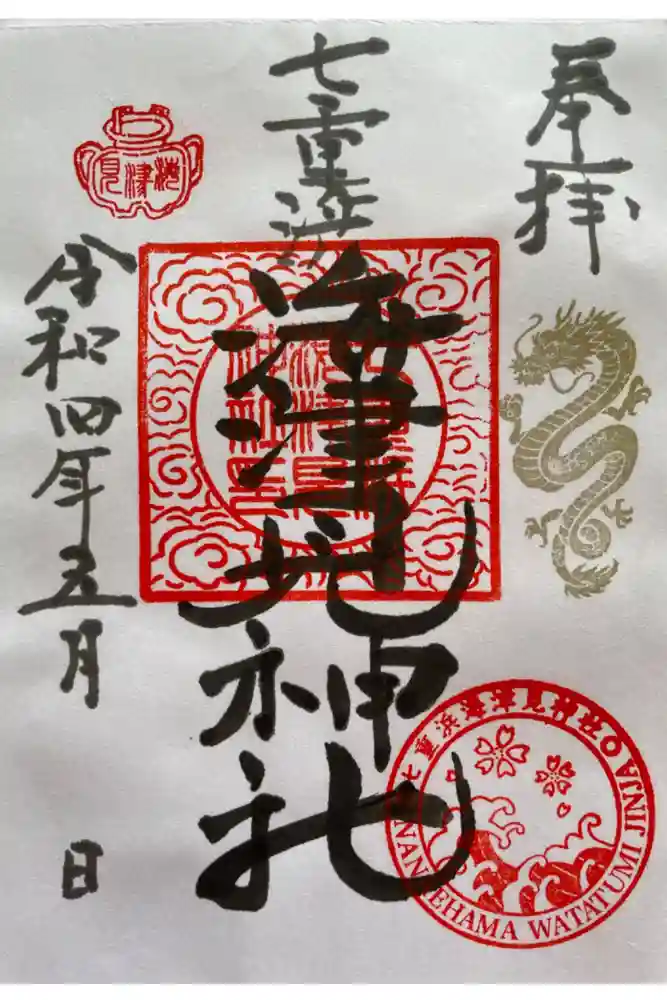 奉拝
七重浜
海津見神社
令和四年五月 日
海津見
七重浜海津見神社
NANAEHAMA WATATUMI JINJA